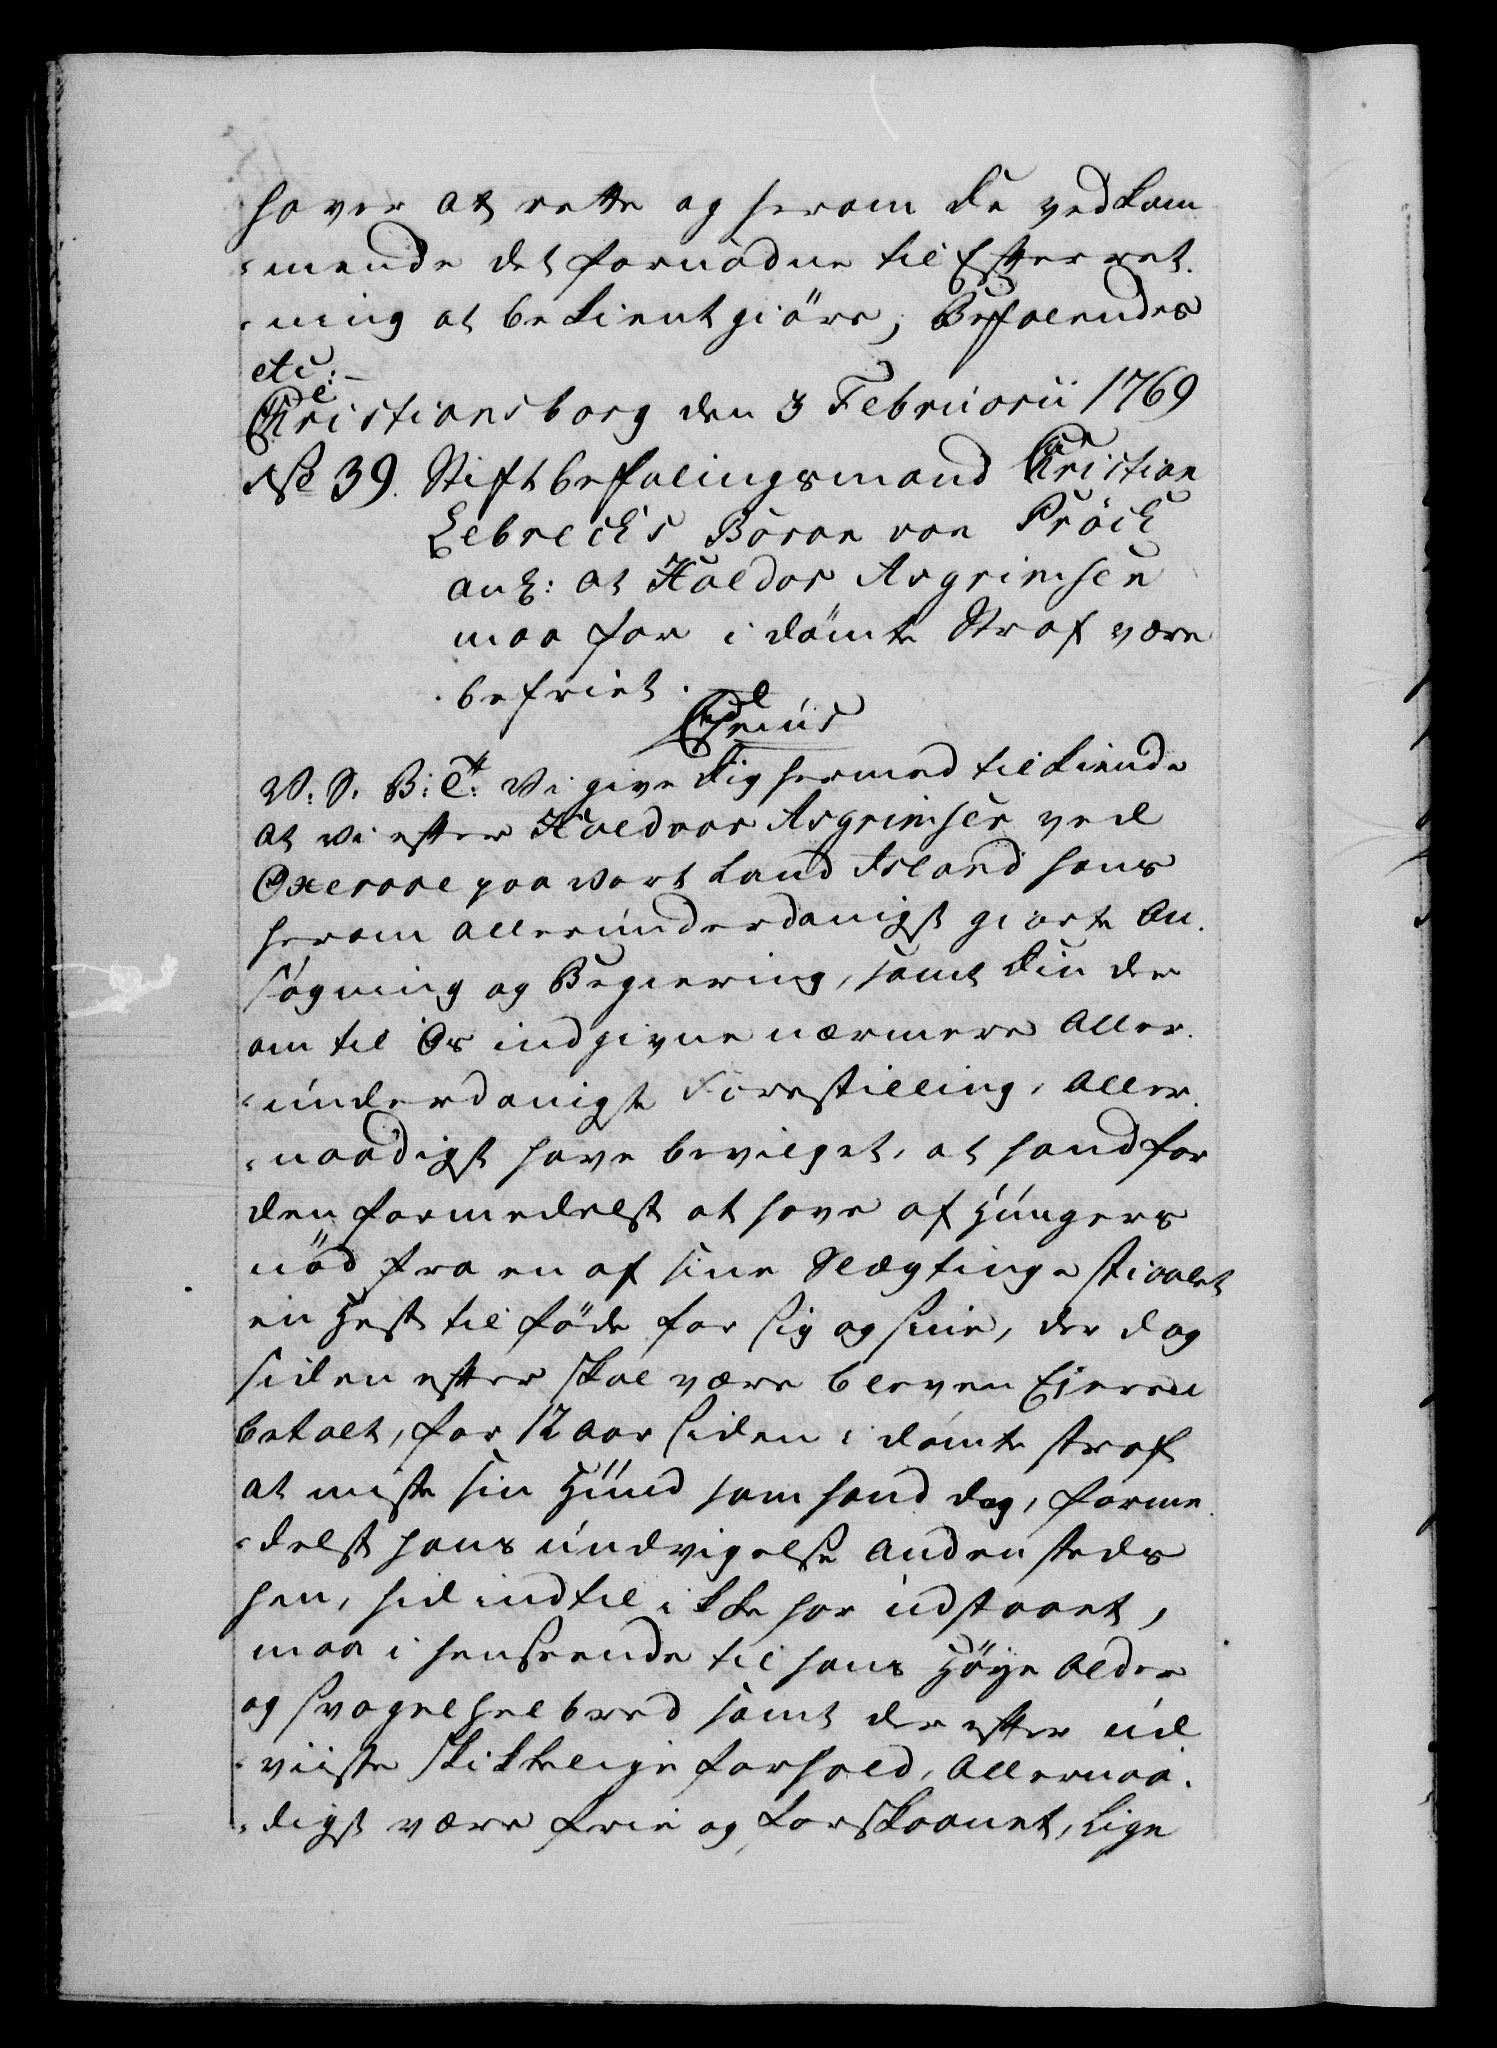 haver at rette og herom de vedkom
-mende det fornødne til Efterret.
-ning at bekientgiöre; Befalendes
etc:
Christiansborg den 3 Februarii 1769
No 39. Stiftbefalingsmand Christian
Lebrecht Baron von Pröck
ank: at Haldor Asgrimsen
maa for idömte Straf være
befriet.
Cxxxx
V. S. B: Ct: Vi give dig hermed tilkiende
at vi efter Haldvor Asgrimsen ved
Oxeraae paa vort Land Island hans
herom allerunderdanigst giorte An.
søgning og Begiering, samt din der
om til Os indgivne nærmere Aller.
-underdanigste Forestilling, Aller.
-naadigst have bevilget, at hand for
den formedelst at have af Hungers
nöd fra en af sine Slægtinge stiaalet
en Hest til föde for sig og sine, der dog
siden efter skal være bleven Eieren
betalt, for 12 aar siden idömte straf
at miste sin Huud som hand dog, forme
-delst hans undvigelse andensteds
hen, hid indtil ikke har udstaaet,
maa i henseende til hans Höye Alder
og svage helbred samt der efter ud
-viiste skikkelige forhold, Allernaa.
-digst være frie og forskaanet, Lige